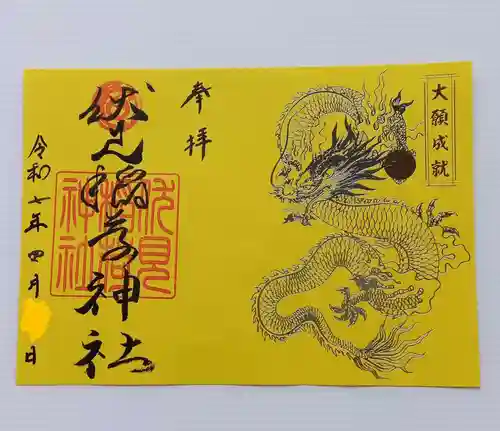 大願成就
奉拝
伏見稲荷神社
伏見
稲荷
神社
令和七年四月
日